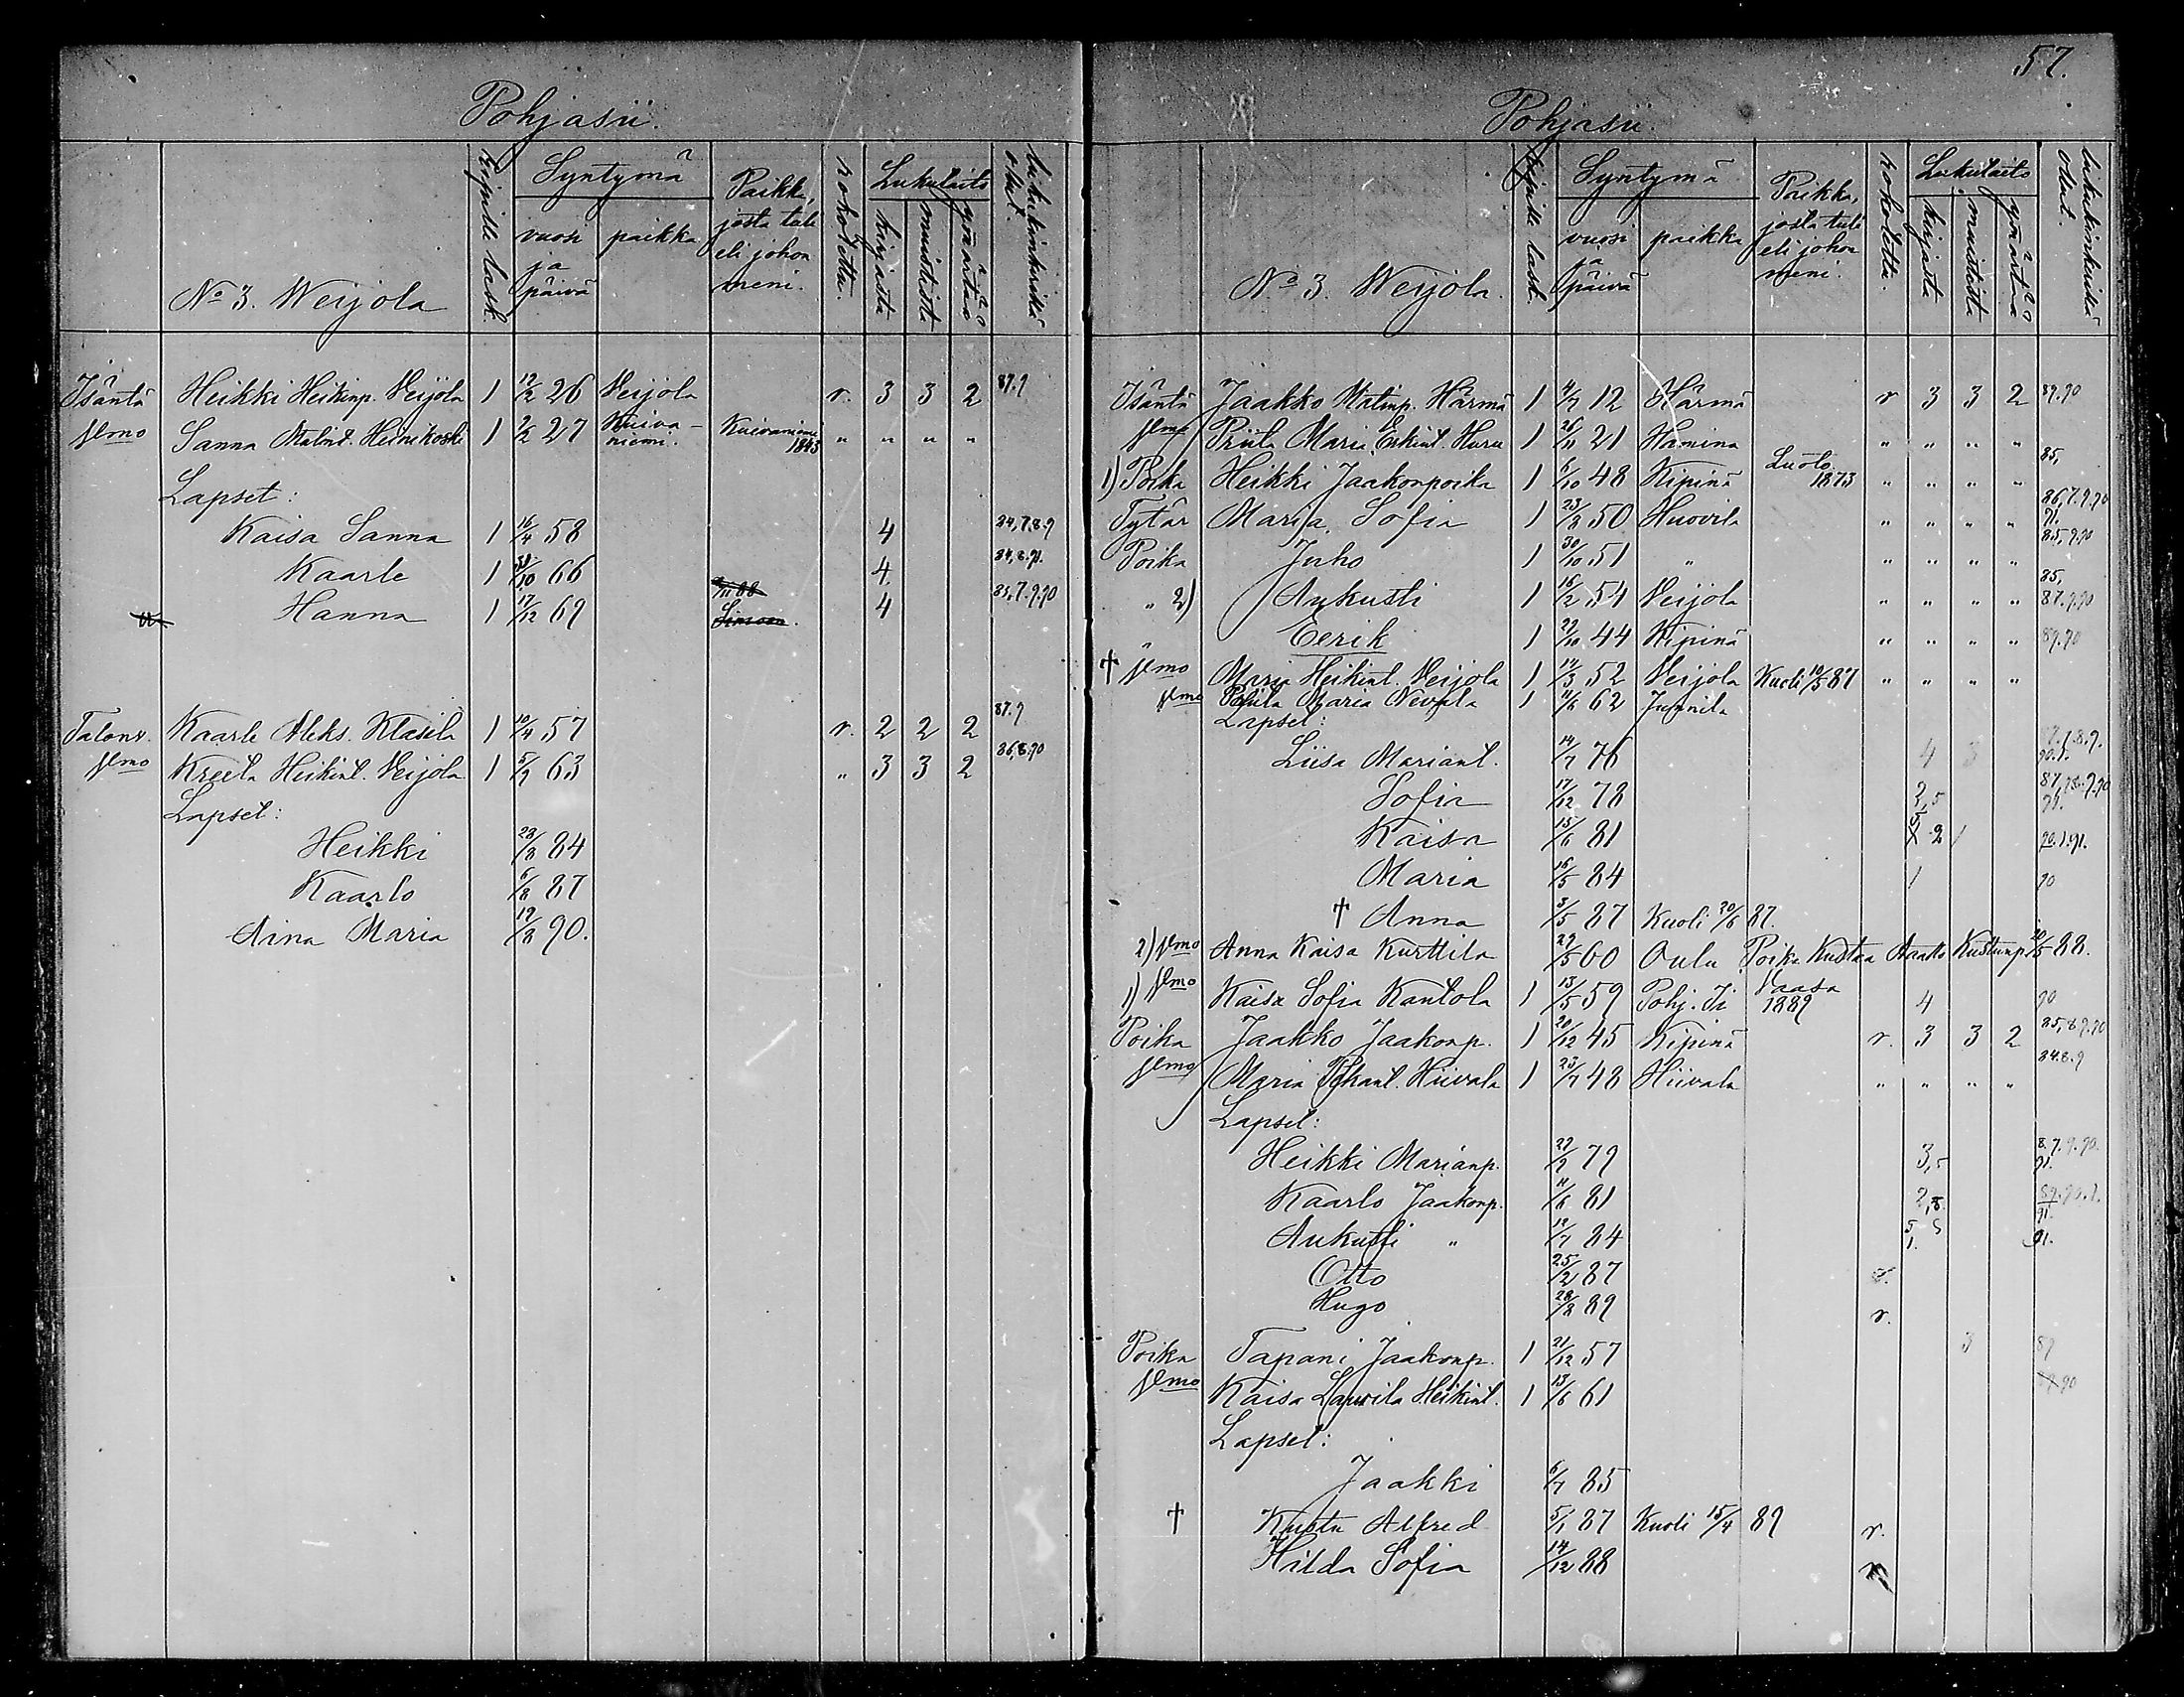 57.
Pohjasii.
No 3. Weijola
Ripille lask.
Syntymä
vuosi ja päivä
paikka
Paikka, josta tuli eli johon meni.
rokotettu.
Lukutaito
kirjasta
muistista
ymmärtää
lukukinkerillä ollut.
Isäntä Heikki Heikinp. Veijola 1 12/2 26 Veijola r. 3 3 2 87.9
Wmo Sanna Matint. Heinikoski 1 2/2 27 Kuivaniemi. Kuivaniemi 1843 " " " "
Lapset:
Kaisa Sanna 1 16/4 58 4 84,7.8.9
Kaarle 1 31/10 66 4. 84,8.91.
Hanna 1 17/12 69 Simoon. 4 85,7.9.90
Talonv. Kaarle Aleks. Klasila 1 10/4 57 r. 2 2 2 87.9
Wmo Kreeta Heikint. Veijola 1 5/9 63 " 3 3 2 86,8.90
Lapset:
Heikki 23/8 84
Kaarlo 6/8 87
Aina Maria 19/8 90.
Pohjasii.
No 3. Weijola.
Ripille lask.
Syntymä
vuosi ja päivä
paikka
Paikka, josta tuli eli johon meni.
rokotettu.
Lukutaito
kirjasta
muistista
ymmärtää
lukukinkerillä ollut.
Isäntä Jaakko Matinp. Härmä 1 4/7 12 Härmä r 3 3 2 89.90
Wmo Priita Maria Erkint. Huru 1 26/11 21 Hamina " " " "
1) Poika Heikki Jaakonpoika 1 6/10 48 Kipinä Luoto 1873 " " " " 85,
Tytär Maria Sofia 1 23/8 50 Huovila " " " " 86,7.9.90 91.
Poika Juho 1 30/10 51 " " " " " 85,9.90
" 2) Aukusti 1 16/2 54 Veijola " " " " 85, 87.9.90
" Eerik 1 22/10 44 Kipinä " " " " 89.90
† Wmo Maria Heikint. Veijola 1 14/3 52 Veijola Kuoli 10/5 87 " " " "
Wmo Maria Nevala 1 11/6 62 Junnila
Lapset:
Liisa Mariant. 14/7 76 4 3
Sofia 17/12 78
Kaisa 15/6 81 90.1.91.
Maria 16/5 84 1 90
† Anna 3/5 87 Kuoli 20/6 87.
2) Wmo Anna Kaisa Kurttila 29/5 60 Oulu Poika Kustaa Kustaanp. 88.
1) Wmo Kaisa Sofia Kantola 1 13/5 59 Pohj. Ii Vaasa 1889 4 90
Poika Jaakko Jaakonp. 1 20/12 45 Kipinä r. 3 3 2 85,8.9.90
Wmo Maria Hiivala 1 23/7 48 Hiivala " " " " 84.8.9
Lapset:
Heikki Marianp. 22/9 79 3,5
Kaarlo Jaakonp. 11/6 81
Aukusti " 19/7 84 91.
Otto 25/12 87 r.
Hugo 28/8 89 r.
Poika Tapani Jaakonp. 1 21/12 57 3 89
Wmo Kaisa Laurila Heikint. 1 13/6 61 90
Lapset:
Jaakki 6/7 85
† Kusta Alfred 5/1 87 Kuoli 15/4 89 r.
Hilda Sofia 14/12 88 r.